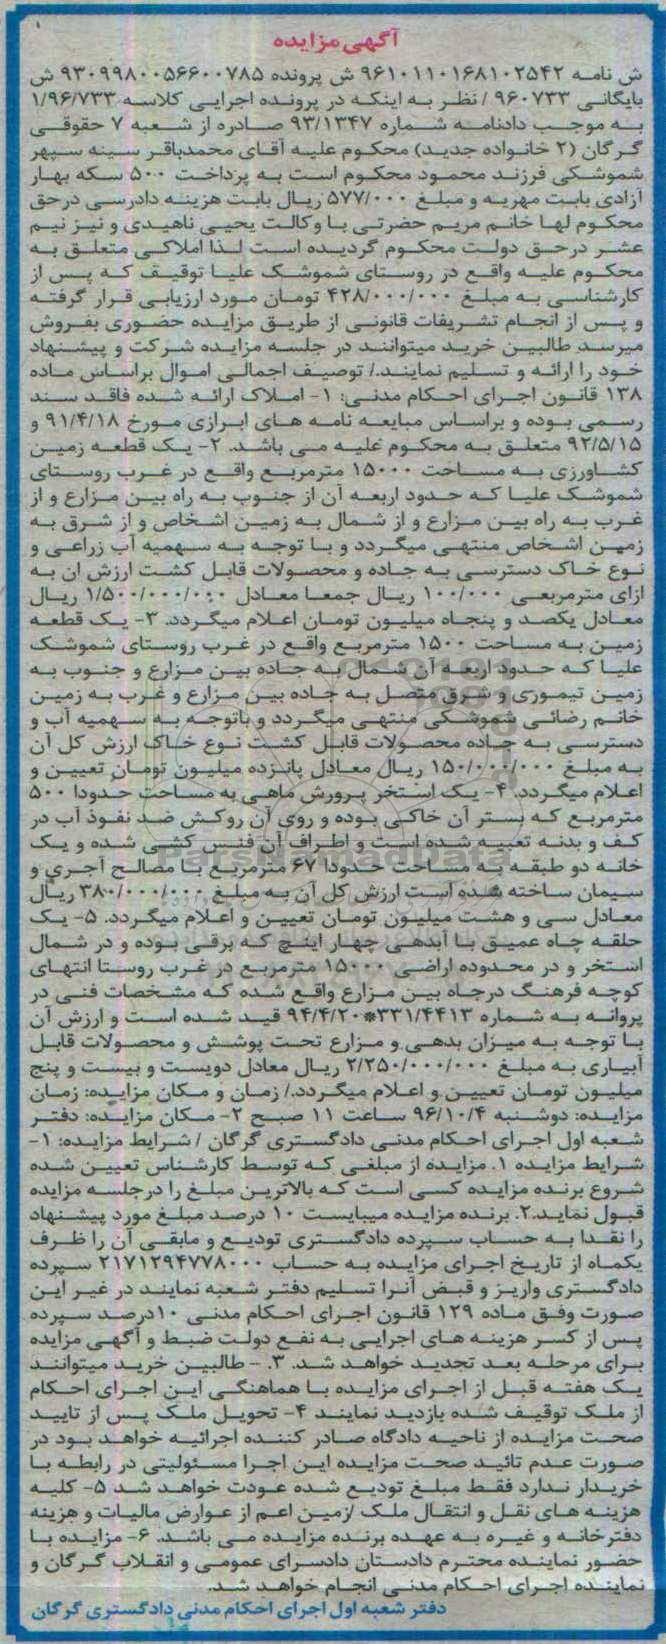 آگهی مزایده
ش نامه ۹۶۱۰۱۱۰۱۶۸۱۰۲۵۴۲ ش پرونده ۹۳۰۹۹۸۰۰۵۶۶۰۰۷۸۵ ش
بایگانی ۹۶۰۷۳۳ / نظر به اینکه در پرونده اجرایی کلاسه ۱/۹۶/۷۳۳
به موجب دادنامه شماره ۹۳/۱۳۴۷ صادره از شعبه ۷ حقوقی
گرگان (۲ خانواده جدید) محکوم علیه آقای محمدباقر سینه سپهر
شموشکی فرزند محمود محکوم است به پرداخت ۵۰۰ سکه بهار
آزادی بابت مهریه و مبلغ ۵۷۷/۰۰۰ ریال بابت هزینه دادرسی درحق
محکوم لها خانم مریم حضرتی با وکالت یحیی ناهیدی و نیز نیم
عشر درحق دولت محکوم گردیده است لذا املاکی متعلق به
محکوم علیه واقع در روستای شموشک علیا توقیف که پس از
کارشناسی به مبلغ ۴۲۸/۰۰۰/۰۰۰ تومان مورد ارزیابی قرار گرفته
و پس از انجام تشریفات قانونی از طریق مزایده حضوری بفروش
میرسد طالبین خرید میتوانند در جلسه مزایده شرکت و پیشنهاد
خود را ارائه و تسلیم نمایند./ توصیف اجمالی اموال براساس ماده
۱۳۸ قانون اجرای احکام مدنی: ۱- املاک ارائه شده فاقد سند
رسمی بوده و براساس مبایعه نامه های ابرازی مورخ ۹۱/۴/۱۸ و
۹۲/۵/۱۵ متعلق به محکوم علیه می باشد. ۲- یک قطعه زمین
کشاورزی به مساحت ۱۵۰۰۰ مترمربع واقع در غرب روستای
شموشک علیا که حدود اربعه آن از جنوب به راه بین مزارع و از
غرب به راه بین مزارع و از شمال به زمین اشخاص و از شرق به
زمین اشخاص منتهی میگردد و با توجه به سهمیه آب زراعی و
نوع خاک دسترسی به جاده و محصولات قابل کشت ارزش ان به
ازای مترمربعی ۱۰۰/۰۰۰ ریال جمعا معادل ۱/۵۰۰/۰۰۰/۰۰۰ ریال
معادل یکصد و پنجاه میلیون تومان اعلام میگردد. ۳- یک قطعه
زمین به مساحت ۱۵۰۰ مترمربع واقع در غرب روستای شموشک
علیا که حدود اربعه آن شمال به جاده بین مزارع و جنوب به
زمین تیموری و شرق متصل به جاده بین مزارع و غرب به زمین
خانم رضائی شموشکی منتهی میگردد و باتوجه به سهمیه آب و
دسترسی به جاده محصولات قابل کشت نوع خاک ارزش کل آن
به مبلغ ۱۵۰/۰۰۰/۰۰۰ ریال معادل پانزده میلیون تومان تعیین و
اعلام میگردد. ۴- یک استخر پرورش ماهی به مساحت حدودا ۵۰۰
مترمربع که بستر آن خاکی بوده و روی آن روکش ضد نفوذ آب در
کف و بدنه تعبیه شده است و اطراف آن فنس کشی شده و یک
خانه دو طبقه به مساحت حدودا ۶۷ مترمربع با مصالح آجری و
سیمان ساخته شده است ارزش کل آن به مبلغ ۳۸۰/۰۰۰/۰۰۰ ریال
معادل سی و هشت میلیون تومان تعیین و اعلام میگردد. ۵- یک
حلقه چاه عمیق با آبدهی چهار اینچ که برقی بوده و در شمال
استخر و در محدوده اراضی ۱۵۰۰۰ مترمربع در غرب روستا انتهای
کوچه فرهنگ درجاه بین مزارع واقع شده که مشخصات فنی در
پروانه به شماره ۳۳۱/۴۴۱۳*۹۴/۴/۲۰ قید شده است و ارزش آن
با توجه به میزان بدهی و مزارع تحت پوشش و محصولات قابل
آبیاری به مبلغ ۲/۲۵۰/۰۰۰/۰۰۰ ریال معادل دویست و بیست و پنج
میلیون تومان تعیین و اعلام میگردد./ زمان و مکان مزایده: زمان
مزایده: دوشنبه ۹۶/۱۰/۴ ساعت ۱۱ صبح ۲- مکان مزایده: دفتر
شعبه اول اجرای احکام مدنی دادگستری گرگان / شرایط مزایده: ۱-
شرایط مزایده ۱. مزایده از مبلغی که توسط کارشناس تعیین شده
شروع برنده مزایده کسی است که بالاترین مبلغ را درجلسه مزایده
قبول نماید.۲. برنده مزایده میبایست ۱۰ درصد مبلغ مورد پیشنهاد
را نقدا به حساب سپرده دادگستری تودیع و مابقی آن را ظرف
یکماه از تاریخ اجرای مزایده به حساب ۲۱۷۱۲۹۴۷۷۸۰۰۰ سپرده
دادگستری واریز و قبض آنرا تسلیم دفتر شعبه نمایند در غیر این
صورت وفق ماده ۱۲۹ قانون اجرای احکام مدنی ۱۰درصد سپرده
پس از کسر هزینه های اجرایی به نفع دولت ضبط و آگهی مزایده
برای مرحله بعد تجدید خواهد شد. ۳. - طالبین خرید میتوانند
یک هفته قبل از اجرای مزایده با هماهنگی این اجرای احکام
از ملک توقیف شده بازدید نمایند ۴- تحویل ملک پس از تایید
صحت مزایده از ناحیه دادگاه صادر کننده اجرائیه خواهد بود در
صورت عدم تائید صحت مزایده این اجرا مسئولیتی در رابطه با
خریدار ندارد فقط مبلغ تودیع شده عودت خواهد شد ۵- کلیه
هزینه های نقل و انتقال ملک /زمین اعم از عوارض مالیات و هزینه
دفترخانه و غیره به عهده برنده مزایده می باشد. ۶- مزایده با
حضور نماینده محترم دادستان دادسرای عمومی و انقلاب گرگان و
نماینده اجرای احکام مدنی انجام خواهد شد.
دفتر شعبه اول اجرای احکام مدنی دادگستری گرگان
ParsNamadData